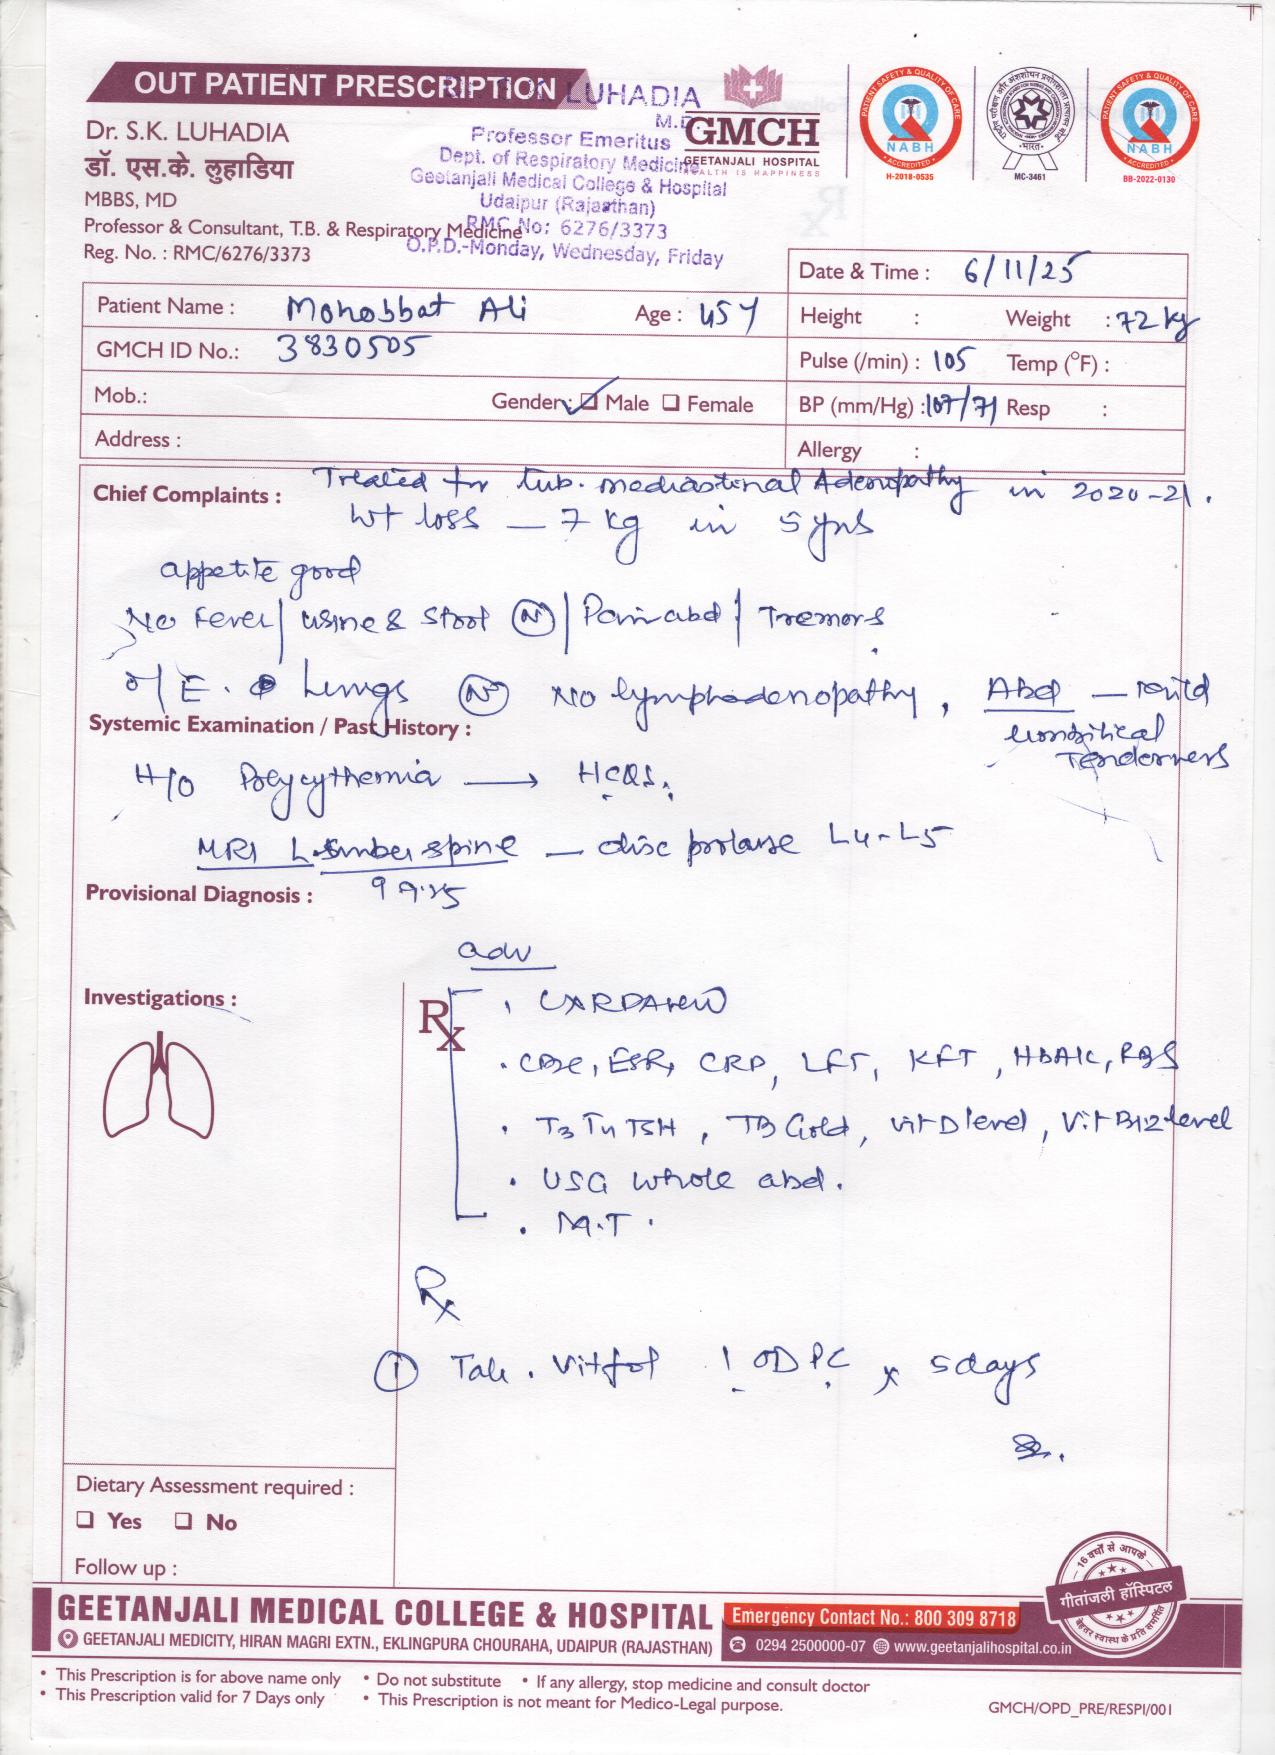 OUT PATIENT PRESCRIPTION
LUHADIA
M.D
Professor Emeritus
Dept. of Respiratory Medicine
Geetanjali Medical College & Hospital
Udaipur (Rajasthan)
RMC No: 6276/3373
O.P.D.-Monday, Wednesday, Friday
Dr. S.K. LUHADIA
डॉ. एस.के. लुहाडिया
MBBS, MD
Professor & Consultant, T.B. & Respiratory Medicine
Reg. No. : RMC/6276/3373
GMCH
GEETANJALI HOSPITAL
HEALTH IS HAPPINESS
PATIENT SAFETY & QUALITY OF CARE
NABH
ACCREDITED
H-2018-0535
भारत
MC-3461
PATIENT SAFETY & QUALITY OF CARE
NABH
ACCREDITED
BB-2022-0130
Date & Time : 6/11/25
Patient Name : Mohobbat Ali Age : 45Y
Height : Weight : 72 kg
GMCH ID No.: 3830505
Pulse (/min) : 105 Temp (°F) :
Mob.: Gender: Male Female
BP (mm/Hg) : 107/71 Resp :
Address :
Allergy :
Chief Complaints : Treated for tub. mediastinal Adenopathy in 2020-21.
Wt loss — 7 kg in 5 yrs
appetite good
No Fever | urine & stool (N) | Pain abd | Tremors
O/E. Lungs (N) No lymphadenopathy, Abd — mild
umbilical
Tenderness
Systemic Examination / Past History :
H/O Polycythemia → HCQS.
MRI Lumber spine — disc prolapse L4-L5
9.9.25
Provisional Diagnosis :
adv
Investigations :
Rx
. CXRPAview
. CBC, ESR, CRP, LFT, KFT, HBA1C, RBS
. T3 T4 TSH, TB Gold, Vit D level, Vit B12 level
. USG whole abd.
. M.T.
Rx
① Tab. Vitfol 1 OD PC x 5 days
Dietary Assessment required :
Yes No
Follow up :
16 वर्षों से आपके
गीतांजली हॉस्पिटल
बेहतर स्वास्थ के प्रति समर्पित
GEETANJALI MEDICAL COLLEGE & HOSPITAL
GEETANJALI MEDICITY, HIRAN MAGRI EXTN., EKLINGPURA CHOURAHA, UDAIPUR (RAJASTHAN)
Emergency Contact No.: 800 309 8718
0294 2500000-07 www.geetanjalihospital.co.in
• This Prescription is for above name only • Do not substitute • If any allergy, stop medicine and consult doctor
• This Prescription valid for 7 Days only • This Prescription is not meant for Medico-Legal purpose.
GMCH/OPD_PRE/RESPI/001